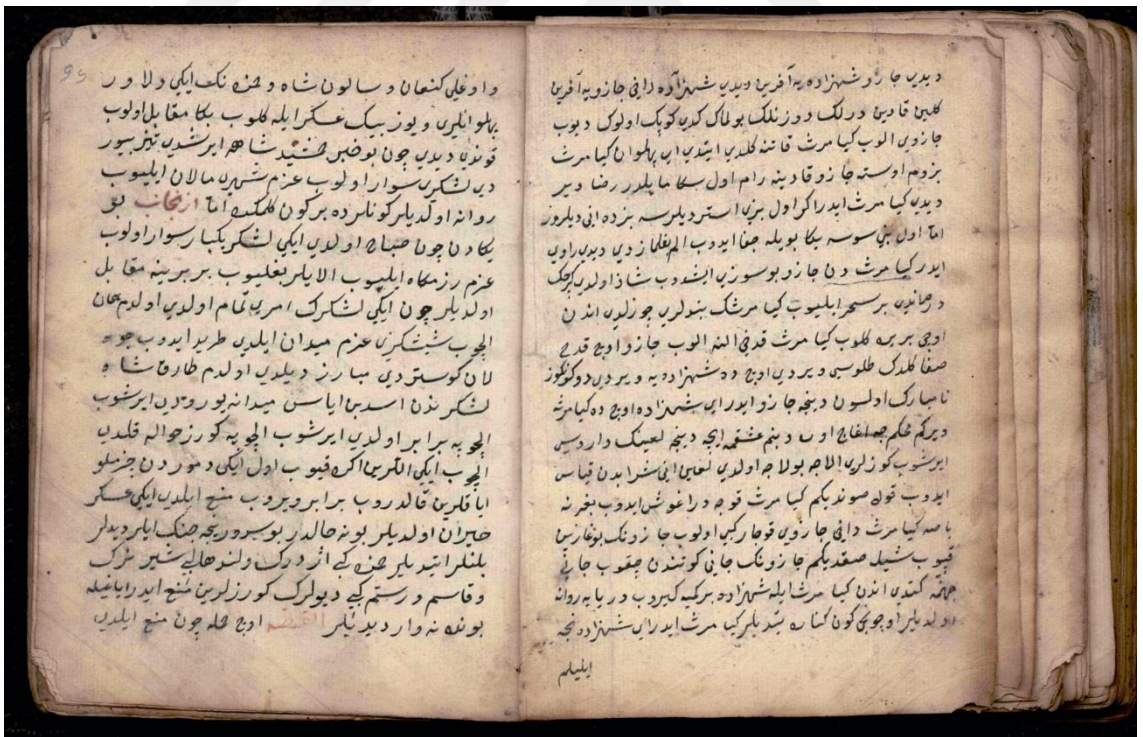 ديدي جازو شهزاده يه آفرين ديدي شهزاده داخى جازويه آفرين
كلين قادين درلك دوزنلك بولماك كدى كوپك اولوك ديوب
جازوى الوب كيا مرث قاتنه كلدى ايتدى اى پهلوان كيا مرث
بزوم اوسته جازو قادينه رام اول سكا مايلدر رضا وير
ديدى كيا مرث ايدر اكر اول بزى استر ديلرسه بزده انى ديلرور
اما اول بنى سوسه بكا بويله جفا ايدوب الم بغلمازدى ديدى راوى
ايدر كيا مرث دن جازو بو سوزى ايشدوب شاذ اولدى كرچك
در صاندى بر سحر ايليوب كيا مرثك بندلرى چوزلدى اندن
اوچى بر يره كلوب كيا مرث قدحى النه الوب جازو اوچ قدح
صفا كلدك طلوسى ويردى اوچ ده شهزاده يه ويردى دوكونكوز
نامبارك اولسون دينجه جازو ايدر اى شهزاده اوچ ده كيا مرثه
ويركم اوب دبنم عشقمه ايچه دينجه لعينك داروسى
ايرشوب كوزلرى الاجه بولاجه اولدى لعين انى شرابدن قياس
ايدوب قولن صوندى كم كيا مرث قوجه دراغوش ايدوب بغرنه
باصه كيا مرث داخى جازوى قوجار كبى اولوب جازونك بوغازين
قپوب شيله صقدى كم جازونك جانى كوتندن چقوب جانى
جهنمه كتدى اندن كيا مرث ايله شهزاده بر كميه كيروب دريايه روانه
اولديلر اوچونجى كون كناره يتديلر كيا مرث ايدر اى شهزاده نجه
ايليلم
99
و اوغلى كنعان و سالون شاه و حمزه نك ايكى دلاور
پهلوانلرى و يوز بيك عسكر ايله كلوب بكا مقابل اولوب
قوندى ديدى چون بو خبر جمشيد شاهه ايرشدى تيز بيور
دى لشكرى سوار اولوب عزم شهرى مالان ايليوب
روانه اولديلر كونلرده بر كون كلمكده اما ازنجانب بو
يكادن چون صباح اولدى ايكى لشكر يكبار سوار اولوب
عزم رزمكاه ايليوب الايلر بغليوب بر برينه مقابل
اولديلر چون ايكى لشكرك امرى تمام اولدى اولدم همان
الچوب شيشكرى عزم ميدان ايلدى طريد ايدوب جو
لان كوستردى مبارز ديلدى اولدم طارق شاه
لشكرندن اسد بن اياس ميدانه يورودى ايرشوب
الچوبه برابر اولدى ايرشوب الچوبه كورز حواله قلدى
الچوب ايكى اللرين اكه قيوب اول ايكى دموردن جزملو
اياقلرين قالدروب برابر ويروب منع ايلدى ايكى عسكر
حيران اولديلر بو نه حالدر بو سرور نيجه جنك ايلر ديدلر
بلنلر ايتديلر حمزه كبى اژدرك ولندهالى شير مرك
و قاسم و رستم كبى ديولرك كورزلرين منع ايدر اياغيله
بونده نه وار ديديلر القصه اوچ حمله چون منع ايلدى